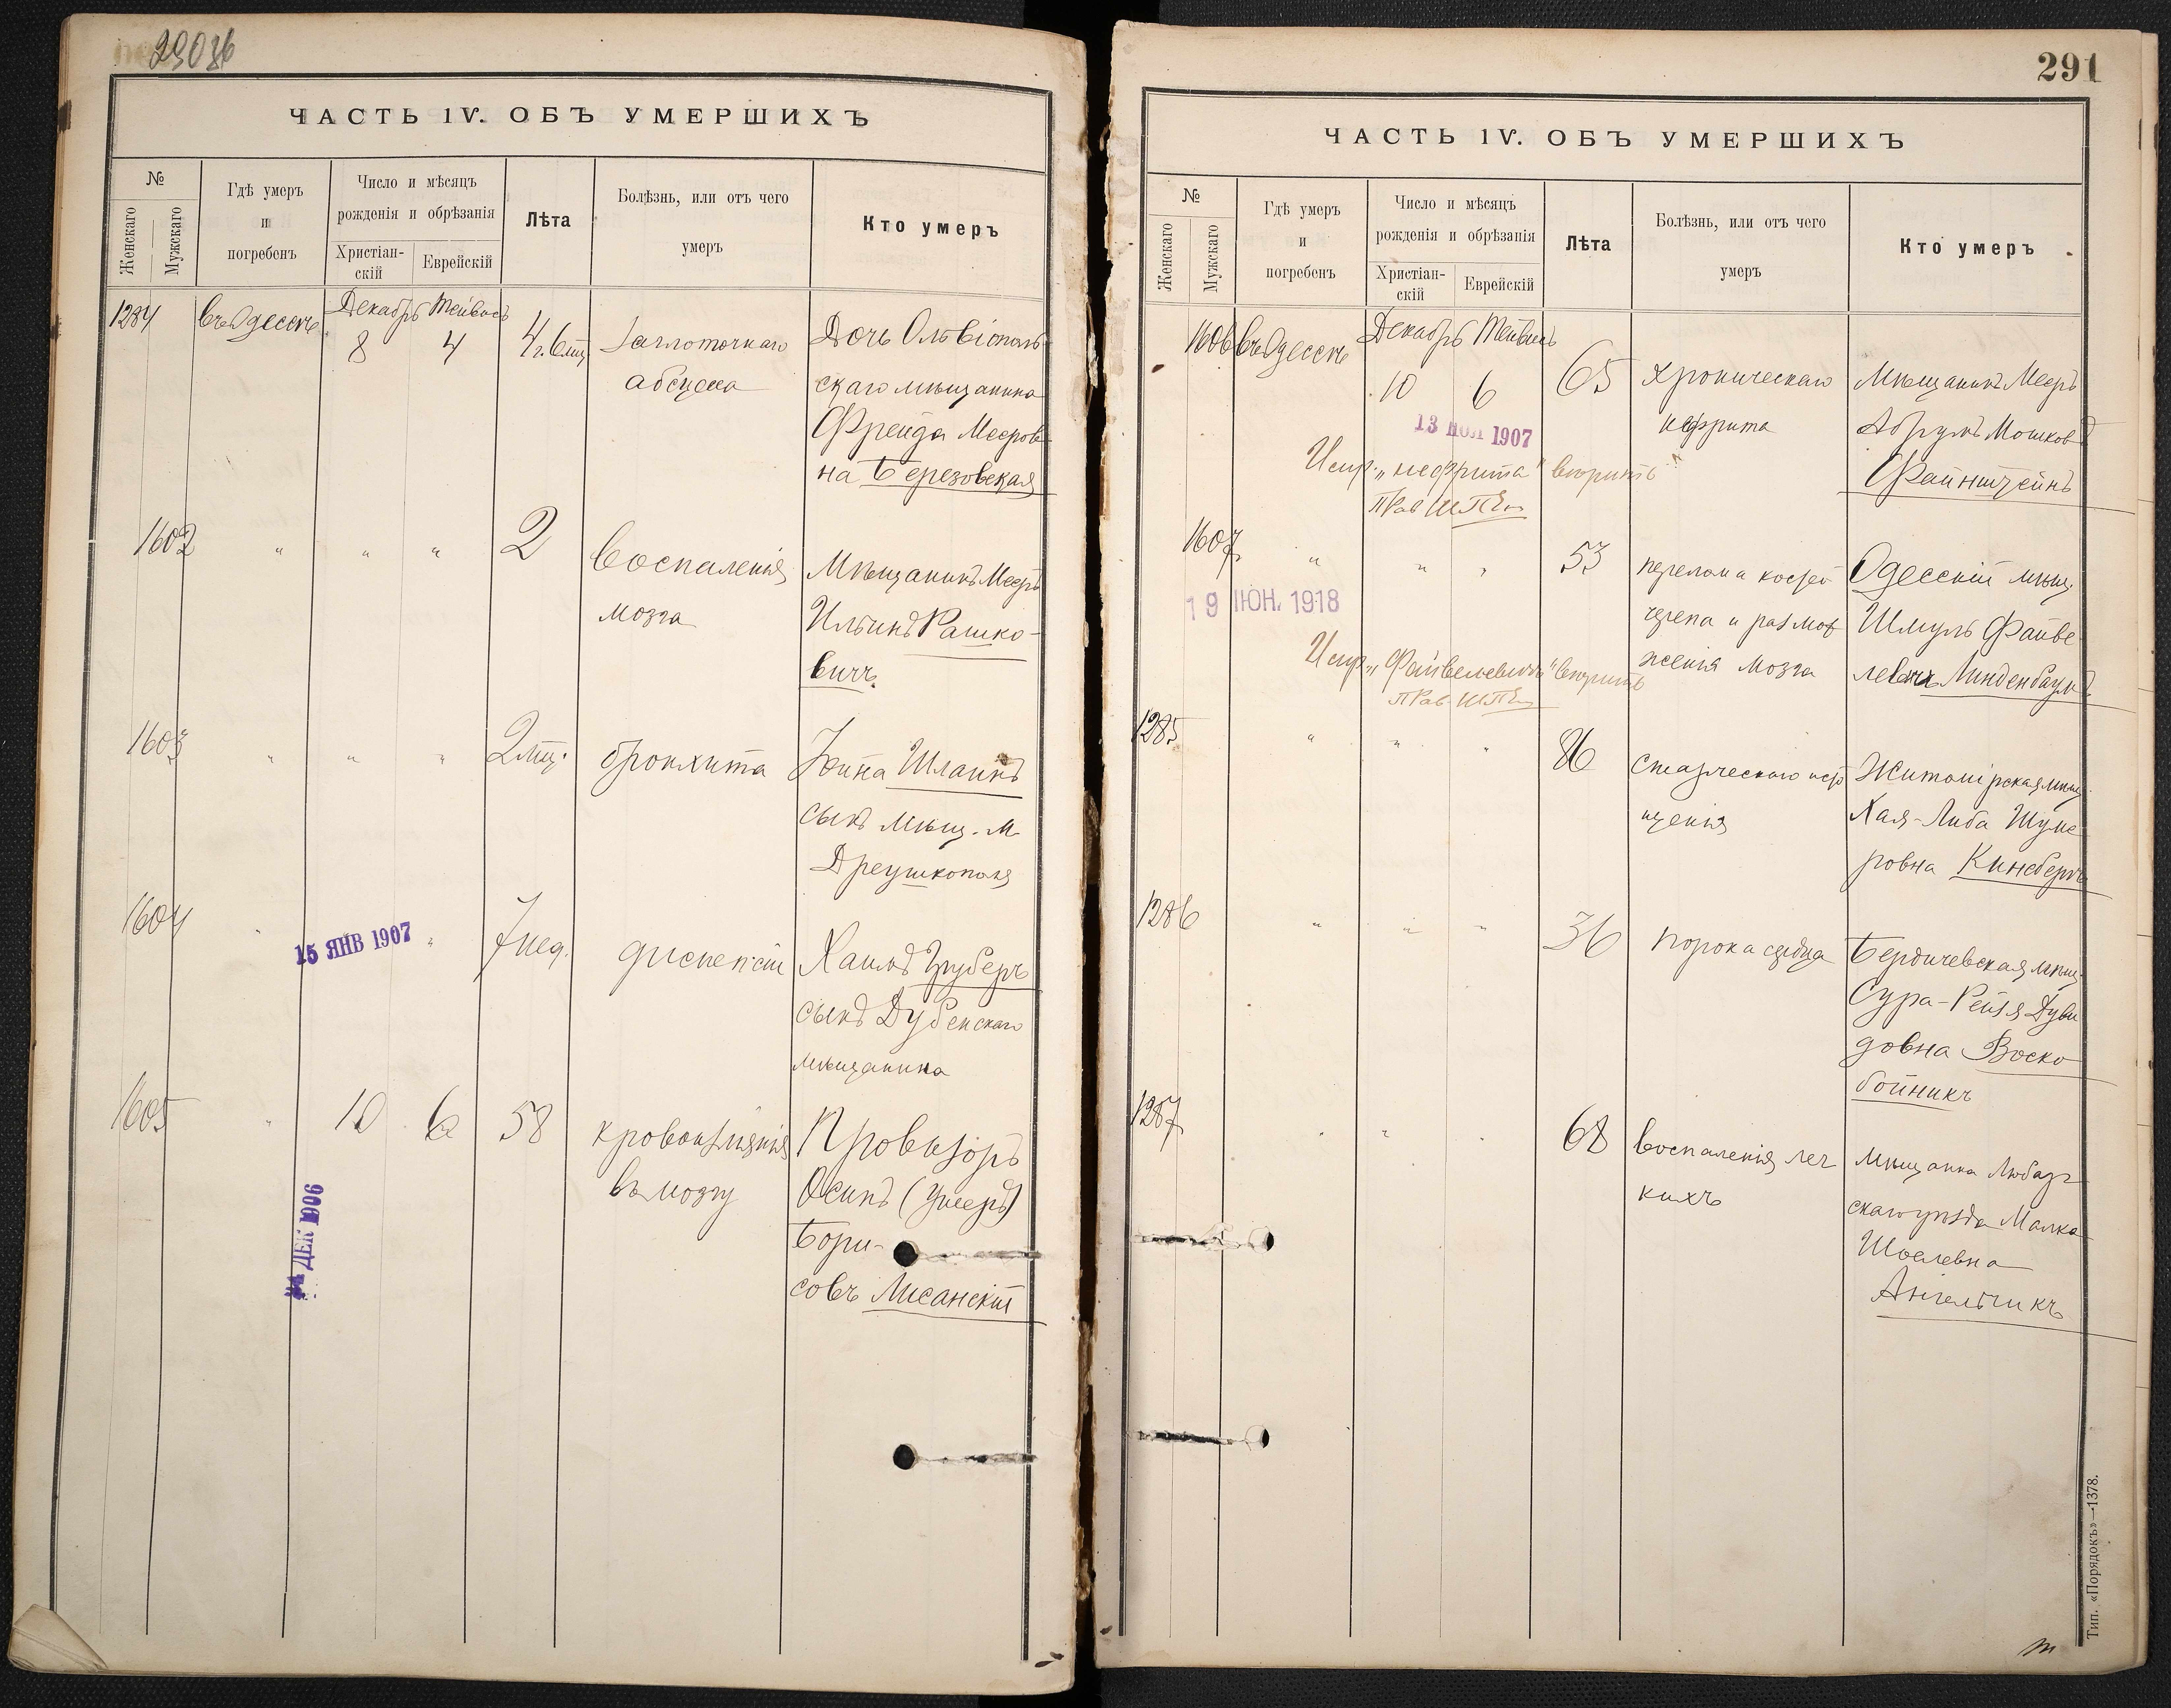 29036
ЧАСТЬ IV. ОБЪ УМЕРШИХЪ
№
Женскаго
Мужскаго
Гдѣ умеръ
и
погребенъ
Число и мѣсяцъ
рожденія и обрѣзанія
Христіан-
скій
Еврейскій
Лѣта
Болѣзнь, или отъ чего
умеръ
Кто умеръ
1284 въ Одессѣ Декабрь Тейвесъ
8 4 4 г. 6 мц. Заглоточнаго Дочь Ольвіополь-
абсцесса скаго мѣщанина
Фрейда Мееров-
на Березовская
1602 " " " 2 Воспаленія Мѣщанинъ Мееръ
мозга Ильинъ Рашко-
вичъ.
1603 " " " 2 мц. бронхита Іойна Шлаинъ
сынъ мѣщ. м.
Дреушкополя
1604 " 15 ЯНВ 1907 " 7 нед. диспепсіи Хаимъ Груберъ
сынъ Дубенскаго
мѣщанина
1605 " 10 6 58 кровоизліянія Провизоръ
въ мозгу Осипъ (Умеръ)
Бори-
совъ Лисанскій
ДЕК 1906
291
ЧАСТЬ IV. ОБЪ УМЕРШИХЪ
№
Женскаго
Мужскаго
Гдѣ умеръ
и
погребенъ
Число и мѣсяцъ
рожденія и обрѣзанія
Христіан-
скій
Еврейскій
Лѣта
Болѣзнь, или отъ чего
умеръ
Кто умеръ
1606 въ Одессѣ Декабрь Тейвесъ
10 6 65 хроническаго Мѣщанинъ Мееръ
13 НОЯ 1907
нефрита Абрумъ Мошковъ
Испр. „нефрита" вѣрить
Файнштейнъ
1607 " " " 53 перелома костей Одесскій мѣщ.
19 ІЮН. 1918
черепа и размоз- Шмуль Файве-
Испр. „Файвелевичъ" вѣрить
женія мозга левичъ Линденбаумъ
1285 " " " 86 старческаго исто- Житомірская мѣщ.
щенія Хая-Либа Шуме-
ровна Кинсбергъ
1286 " " " 36 порока сердца Бердичевская мѣщ.
Сура-Рейзя Дуви-
довна Воско-
бойникъ
1287 " " " 68 воспаленія лег- мѣщанка Любар-
кихъ скаго уѣзда Малка
Шоелевна
Ангельчикъ
Тип. «Порядокъ»—1378.